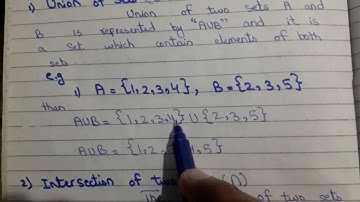 1) Union of Set
Union of two sets A and
B is represented by "AUB" and it is
a set which contain elements of both
sets
e.g
1) A = {1,2,3,4}, B = {2,3,5}
than
AUB = {1,2,3,4} U {2,3,5}
AUB = {1,2, 5}
2) Intersection of (∩)
of two sets